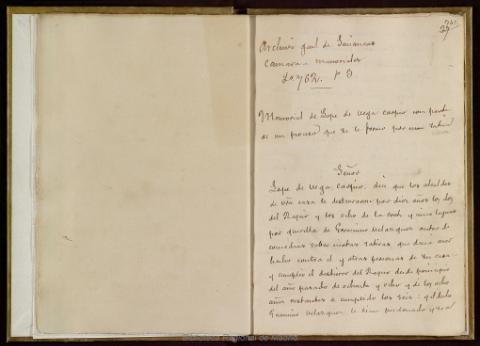 37
Archivo gral de Simancas
Camara - memoriales
Lo 762. f 9
Memorial de Lope de Vega Carpio con parte
de un proceso que se le formó por una satira
Señor
Lope de Vega Carpio, dice que los alcaldes
de vra casa le desterraron por diez años los dos
del Reyno y los ocho de la corte y cinco leguas
por querella de Geronimo Velazquez autor de
comedias sobre ciertas satiras que decia aver
hecho contra el y otras personas de su casa
y cumplio el destierro del Reyno desde principio
del año pasado de ochenta y ocho y de los ocho
años restantes a cumplido los seis: y el dicho
Geronimo Velazquez le tiene perdonado y